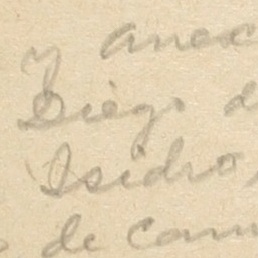 y anex
Diego d
Isidro,
de cam